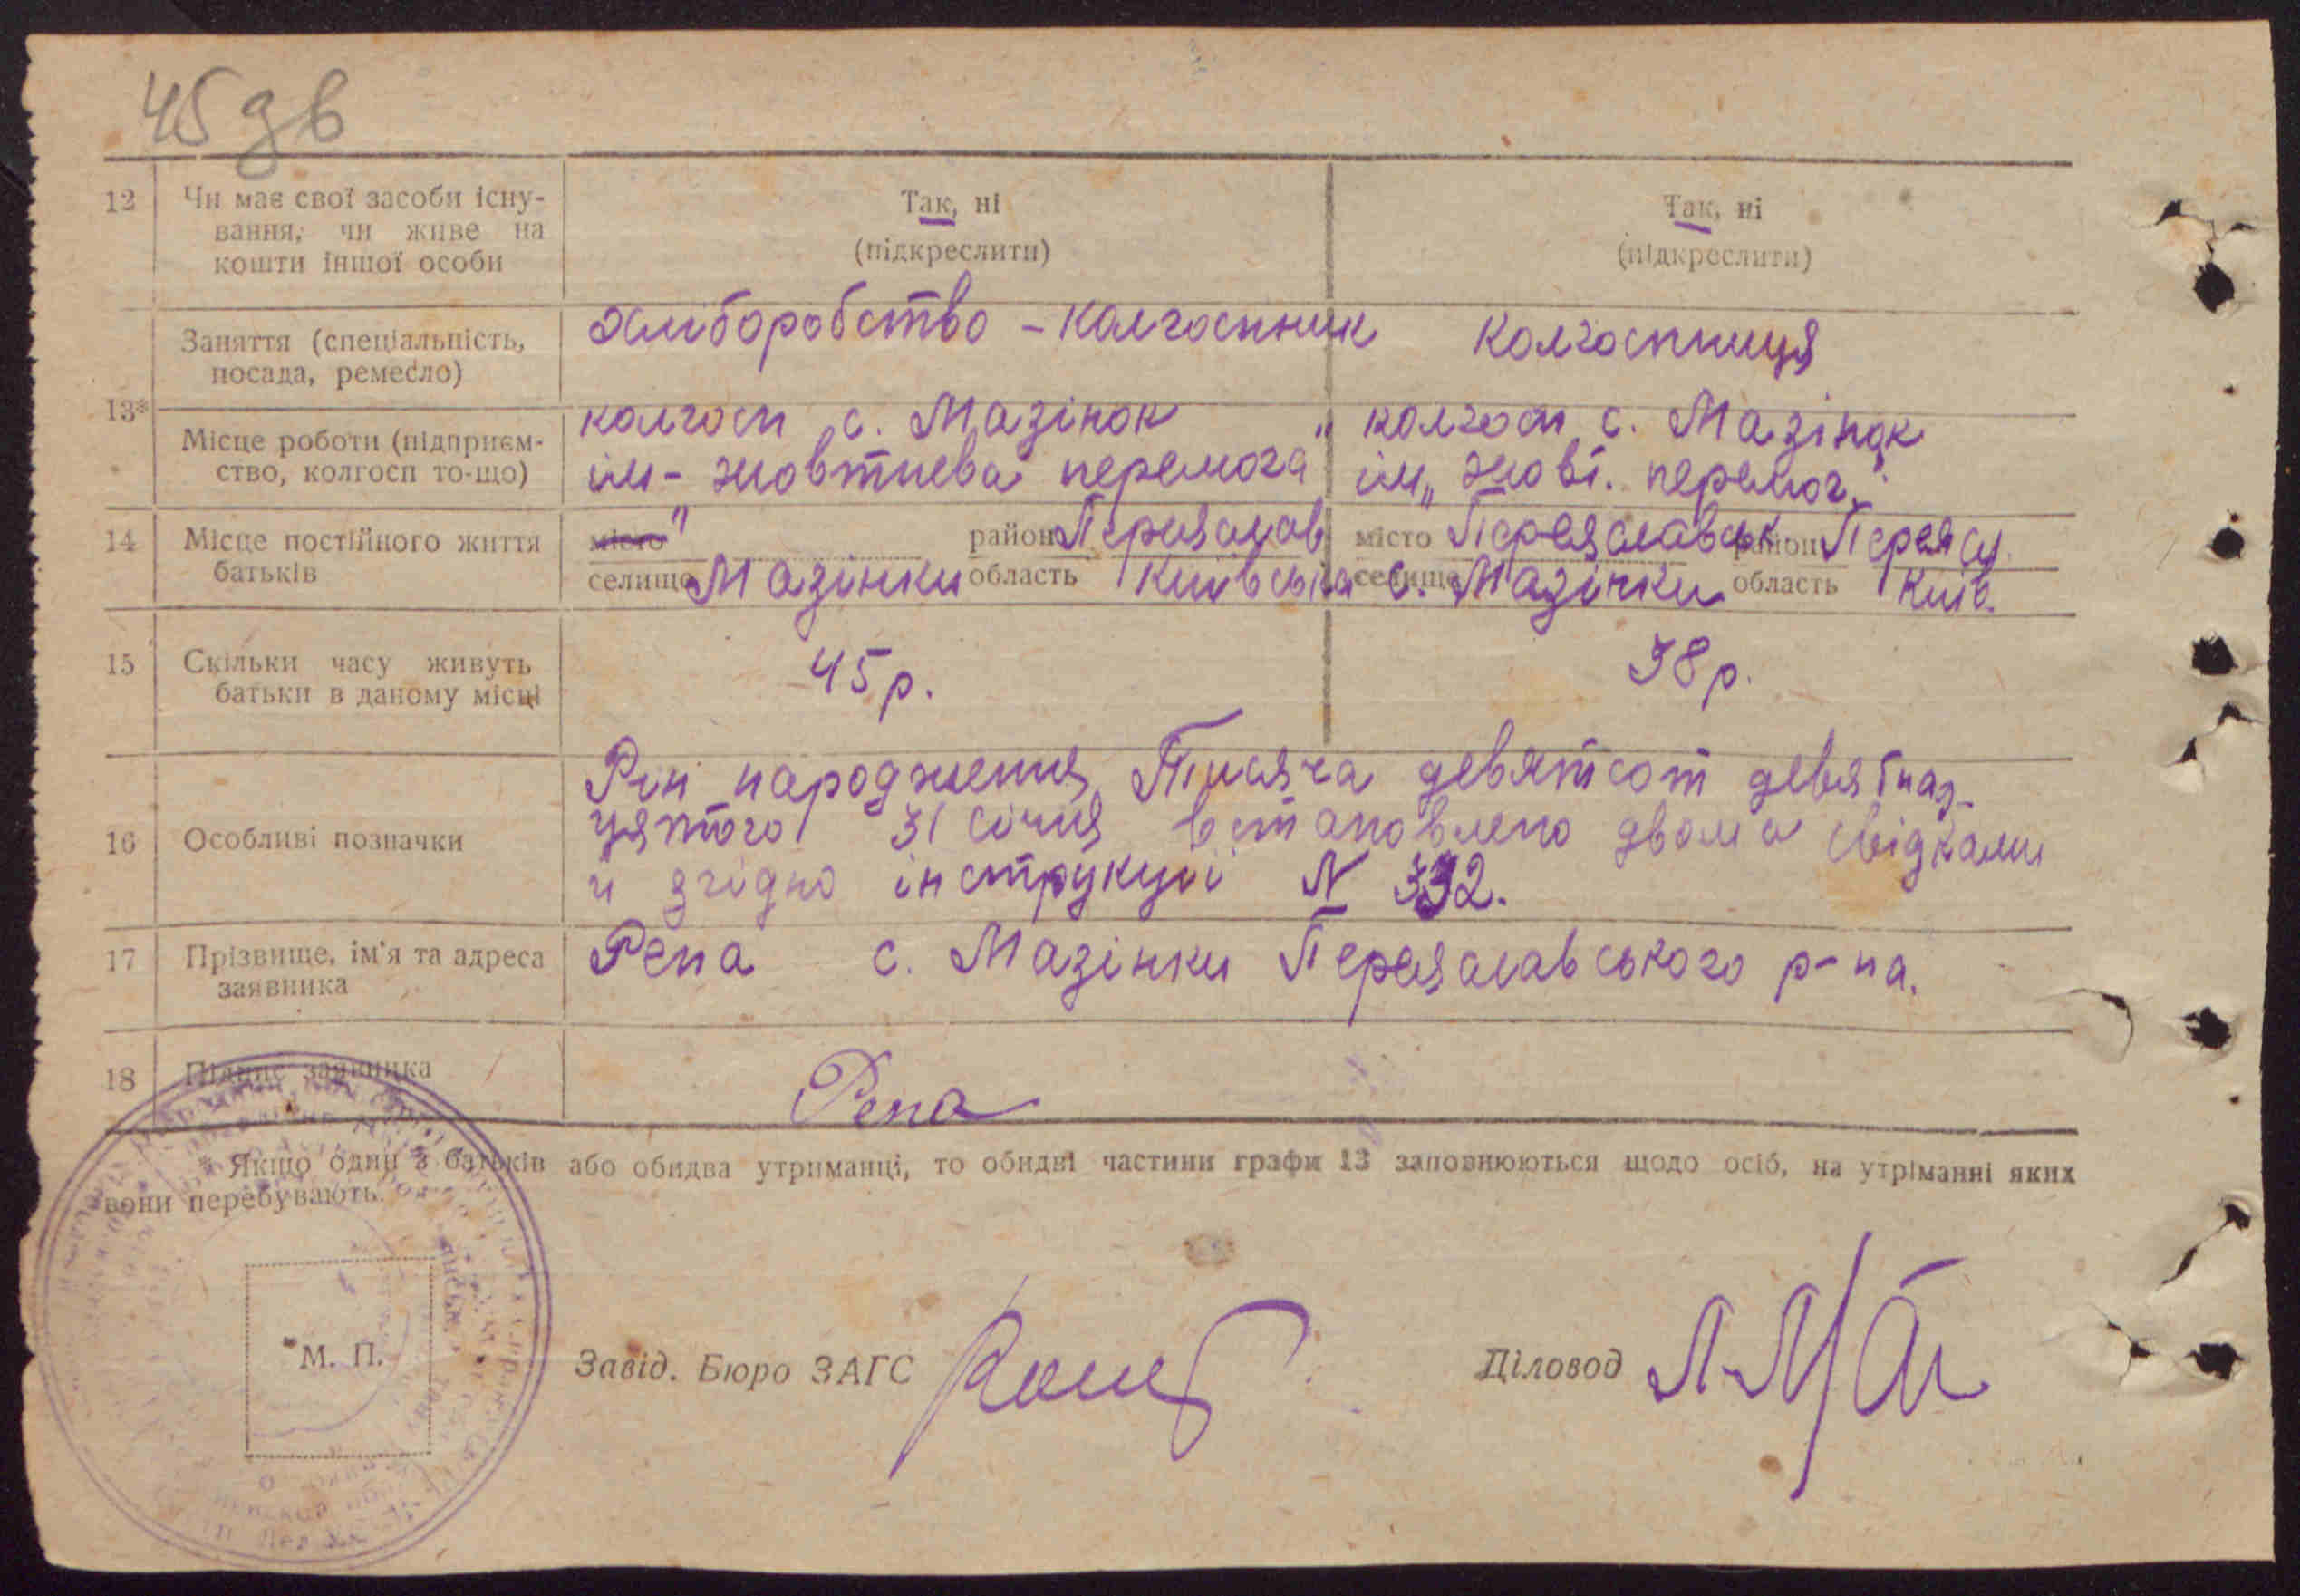 45 зв
12 Чи має свої засоби існу- Так, ні Так, ні
вання, чи живе на (підкреслити) (підкреслити)
кошти іншої особи
13* Заняття (спеціальність, Хліборобство – колгоспник Колгоспниця
посада, ремесло)
Місце роботи (підприєм- колгосп с. Мазінок колгосп с. Мазінок
ство, колгосп то-що) ім – жовтнева перемога" ім „ Жовт. перемог."
14 Місце постійного життя місто район Переяслав місто Переяславськ район Переясл.
батьків селище Мазінки область Київська селище с. Мазінки область Київ.
15 Скільки часу живуть 45 р. 38 р.
батьки в даному місці
16 Особливі позначки Рік народження Тисяча девятсот девятнад-
цятого 31 січня встановлено двома свідками
й згідно інструкції N 332.
17 Прізвище, ім'я та адреса Репа с. Мазінки Переяславського р-на.
заявника
18 Підпис заявника Репа
* Якщо один з батьків або обидва утриманці, то обидві частини графи 13 заповнюються щодо осіб, на утріманні яких
вони перебувають.
М. П. Завід. Бюро ЗАГС Діловод